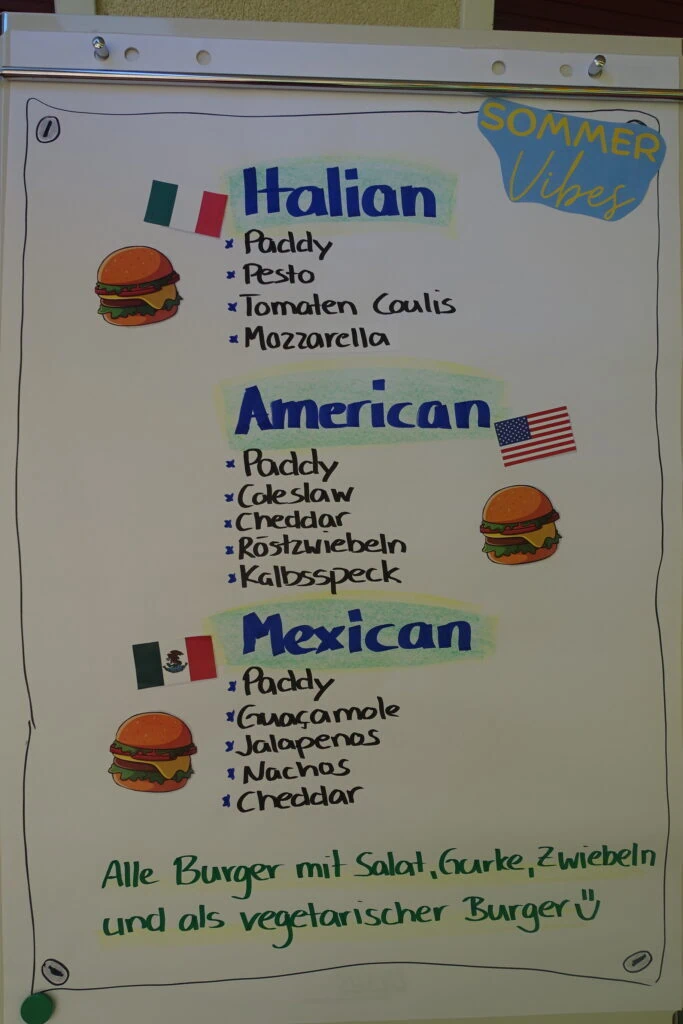 SOMMER
Vibes
Italian
× Paddy
× Pesto
× Tomaten Coulis
× Mozzarella
American
× Paddy
× Coleslaw
× Cheddar
× Röstzwiebeln
× Kalbsspeck
Mexican
× Paddy
× Guaçamole
× Jalapenos
× Nachos
× Cheddar
Alle Burger mit Salat, Gurke, Zwiebeln
und als vegetarischer Burger